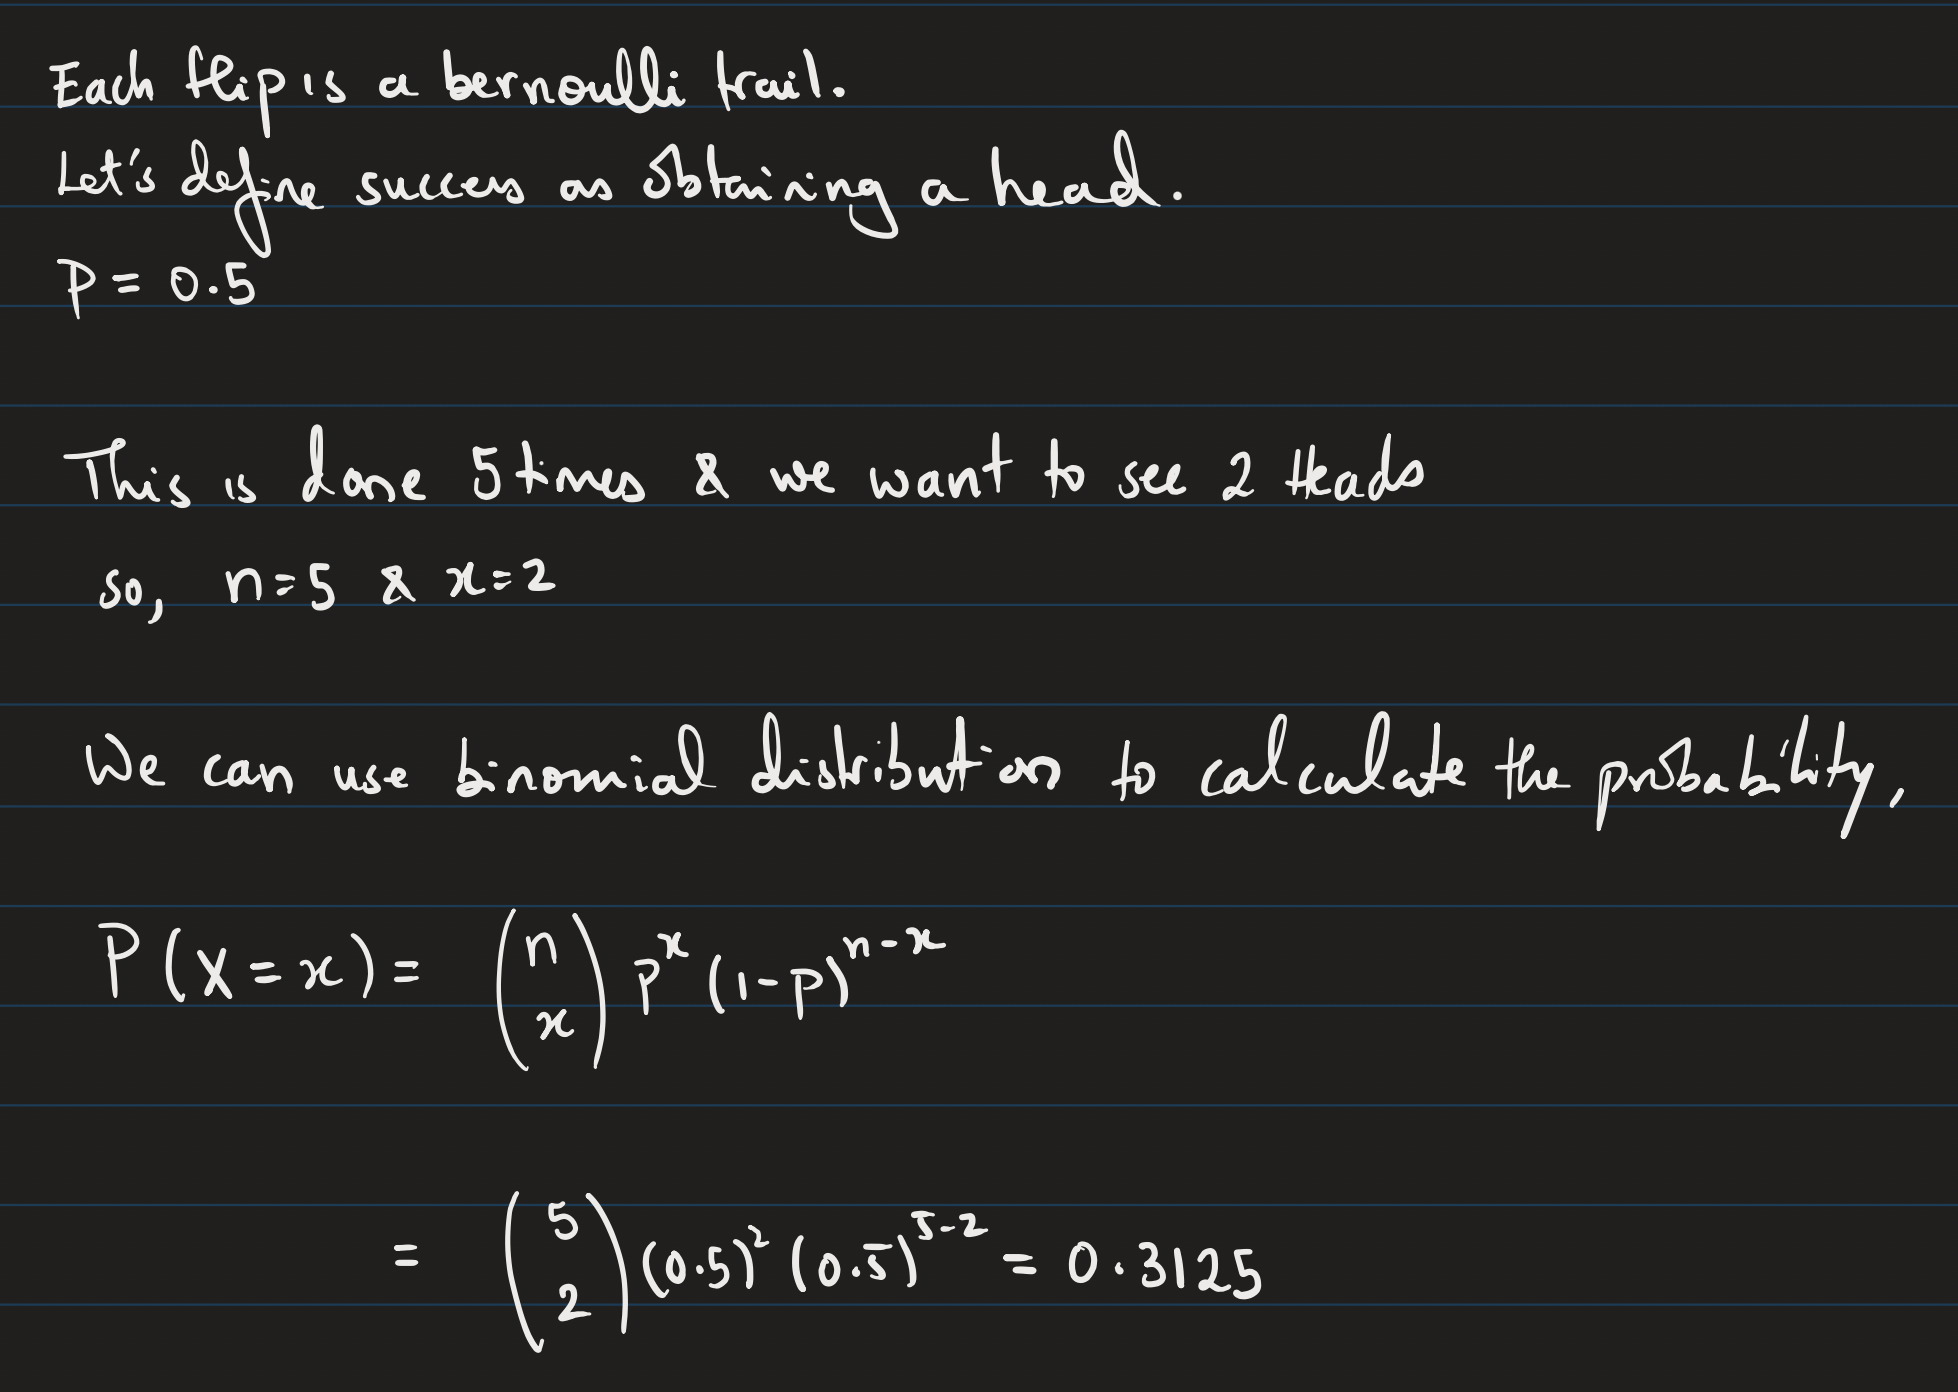 Each flip is a bernoulli trail.
Let's define success as obtaining a head.
P = 0.5
This is done 5 times & we want to see 2 Heads
so, n=5 & x=2
We can use binomial distribution to calculate the probability,
P(X=x) = (n x) p^x (1-p)^{n-x}
= (5 2) (0.5)^2 (0.5)^{5-2} = 0.3125